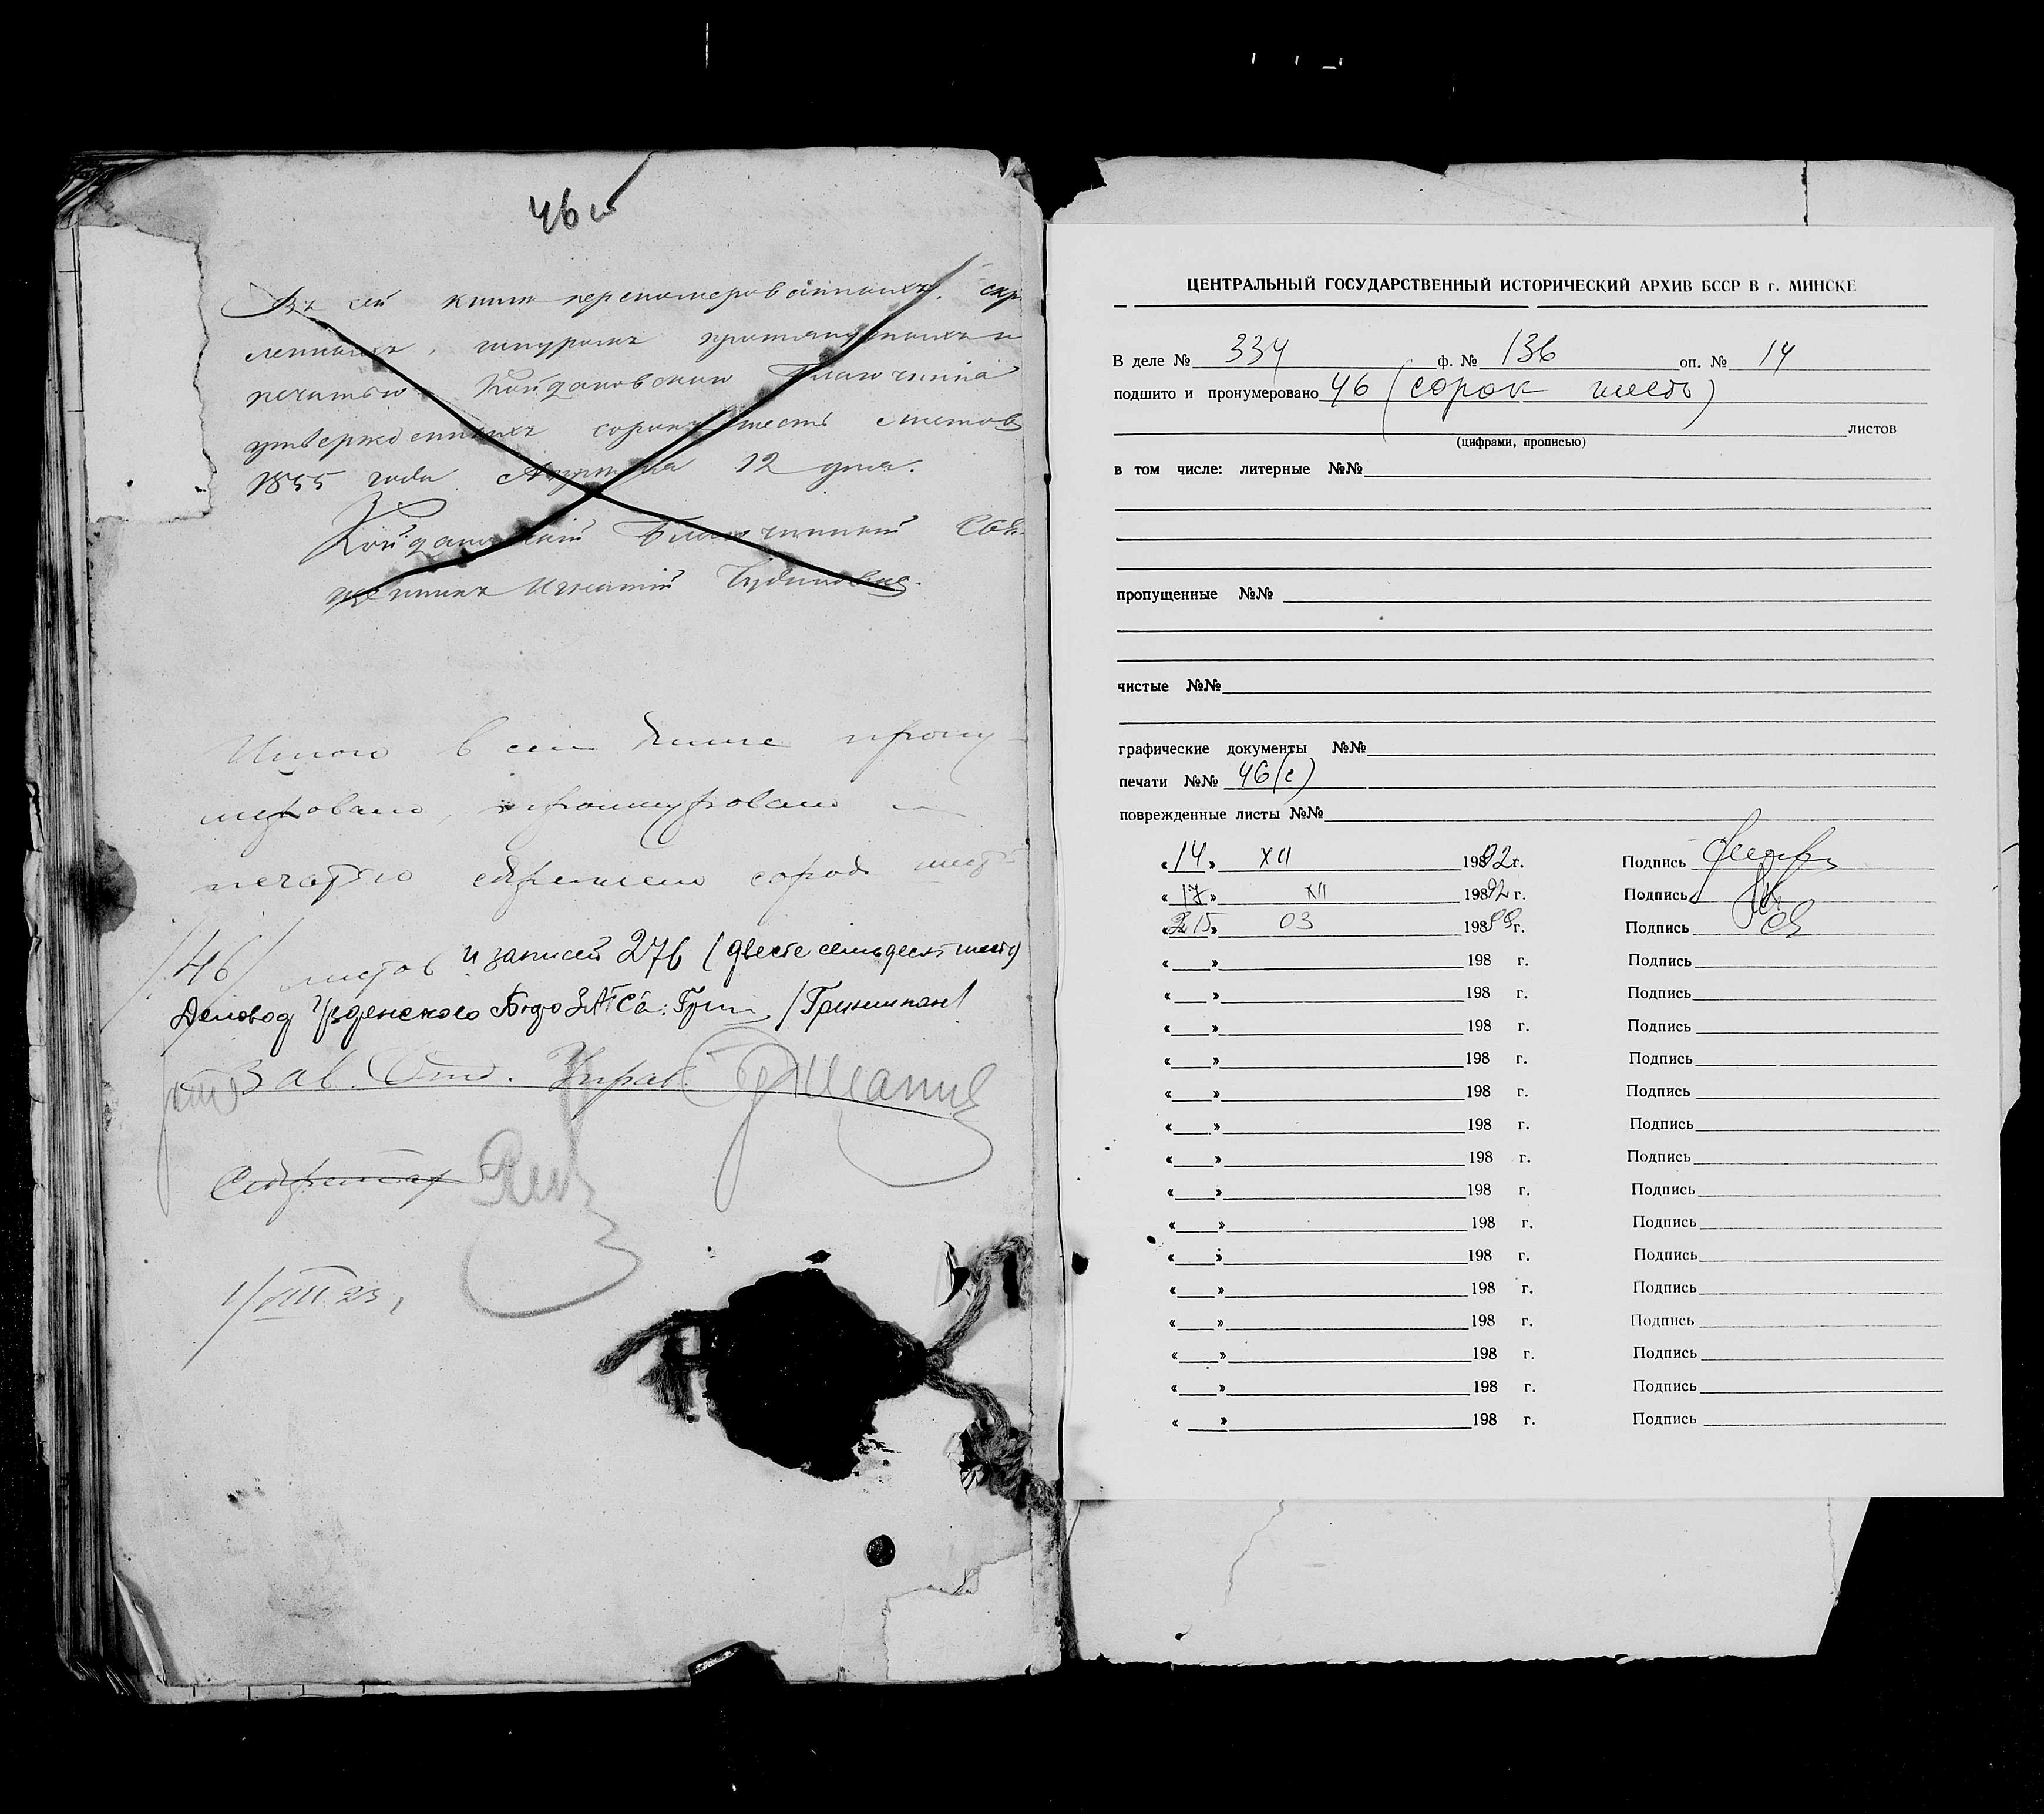 46
Въ сей книги перенумерованныхъ, скр
ленныхъ, шнуромъ протянутыхъ и
печатью Койдановскаго Благочинія
утвержденныхъ сорокъ шесть листовъ
1855 года Августа 12 дня.
Койдановскій Благочинный Свя-
щенникъ Игнатій
Итого в сей книге прону-
меровано, прошнуровано и
печатью скреплено сорок шесть
/46/ листов и записей 276 (двести семьдесят шесть)
Деловод Узденского Бюро ЗАГСа: /Гриншпан/
Зав. Отд. Управ.
Секретарь
1/VIII 23 г
ЦЕНТРАЛЬНЫЙ ГОСУДАРСТВЕННЫЙ ИСТОРИЧЕСКИЙ АРХИВ БССР В г. МИНСКЕ
В деле № 334 ф. № 136 оп. № 14
подшито и пронумеровано 46 (сорок шесть)
листов
(цифрами, прописью)
в том числе: литерные №№
пропущенные №№
чистые №№
графические документы №№
печати №№ 46(с)
поврежденные листы №№
«14» XII 19892г. Подпись
«17» XII 19892 г. Подпись
« 15» 03 198 г. Подпись
« » 198 г. Подпись
« » 198 г. Подпись
« » 198 г. Подпись
« » 198 г. Подпись
« » 198 г. Подпись
« » 198 г. Подпись
« » 198 г. Подпись
« » 198 г. Подпись
« » 198 г. Подпись
« » 198 г. Подпись
« » 198 г. Подпись
« » 198 г. Подпись
« » 198 г. Подпись
« » 198 г. Подпись
« » 198 г. Подпись